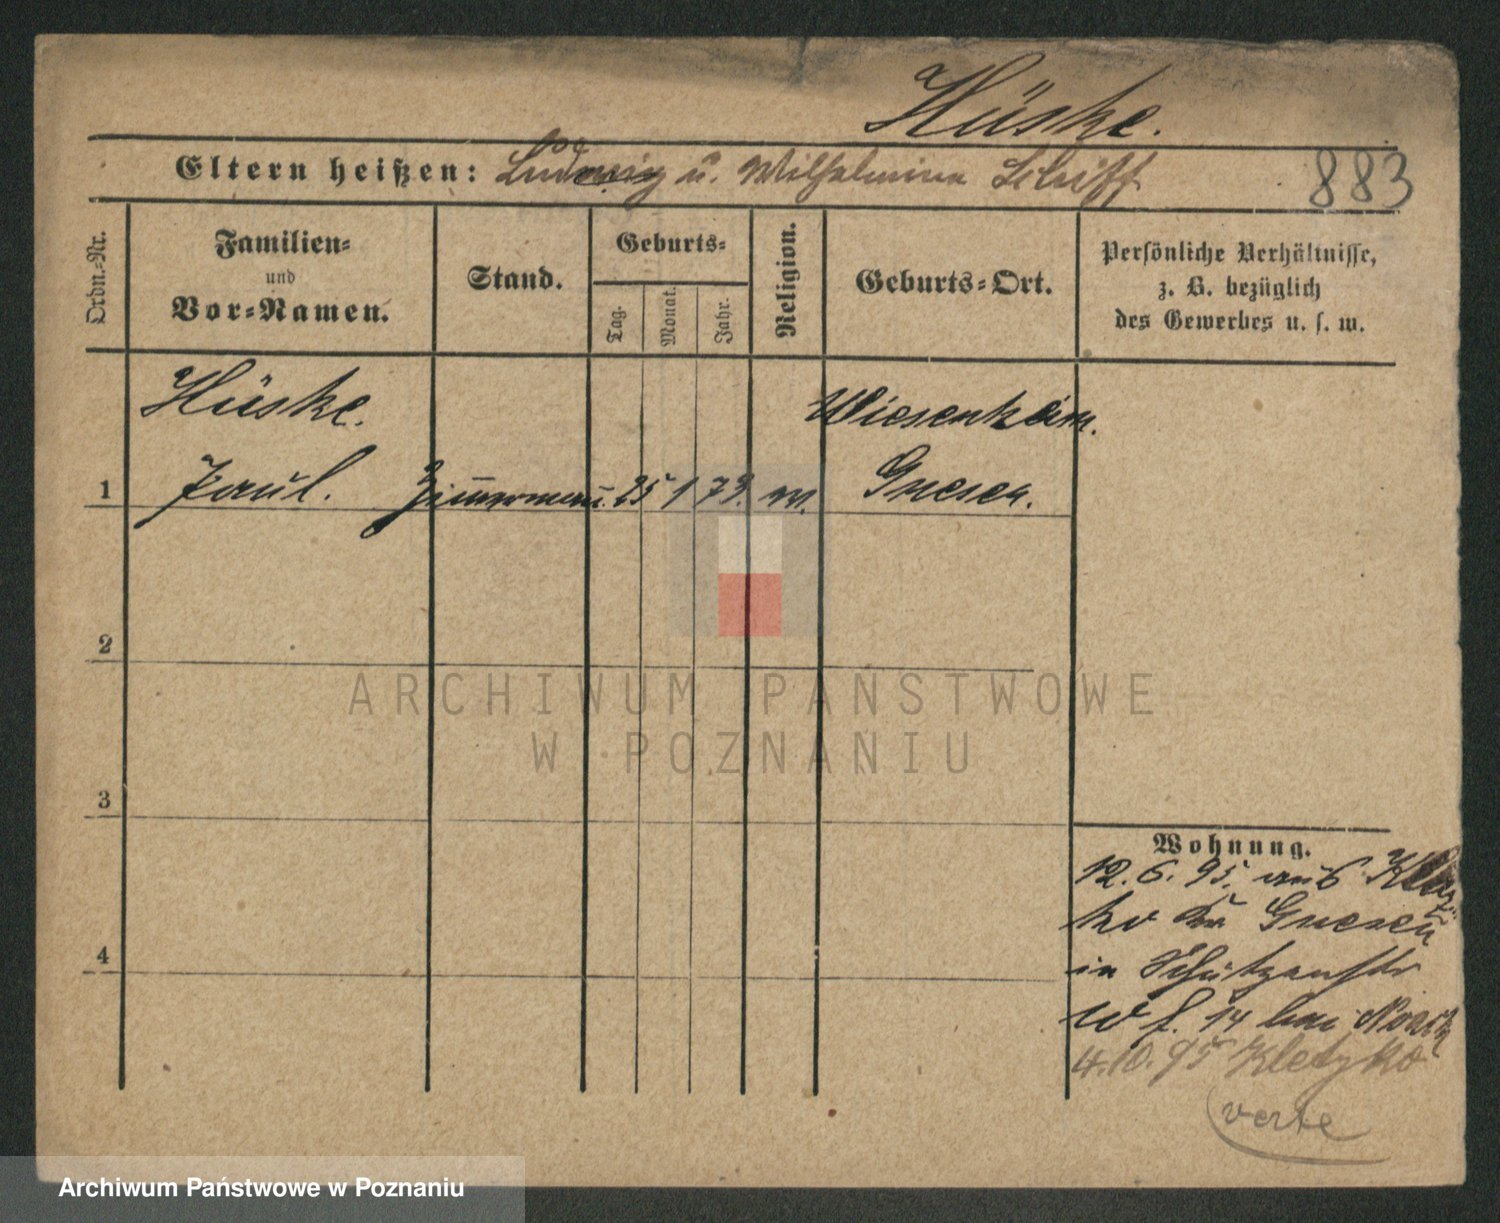 Hüske.
Eltern heißen: Ludwig u. Wilhelmine Schiff
883
Ordn.-Nr.
Familien-
und
Vor-Namen.
Stand.
Geburts-
Tag.
Monat.
Jahr.
Religion.
Geburts-Ort.
Persönliche Verhältnisse,
z. B. bezüglich
des Gewerbes u. s. w.
Hüske. Wiesenheim.
1 Paul. Zimmermann. 25 1 73. Gnesen.
2
3
4
Wohnung.
12. 6. 95. aus
Gnesen
in Schützenstr
14 bei
4.10.95 Kletzko
verte
ARCHIWUM PAŃSTWOWE
W POZNANIU
Archiwum Państwowe w Poznaniu